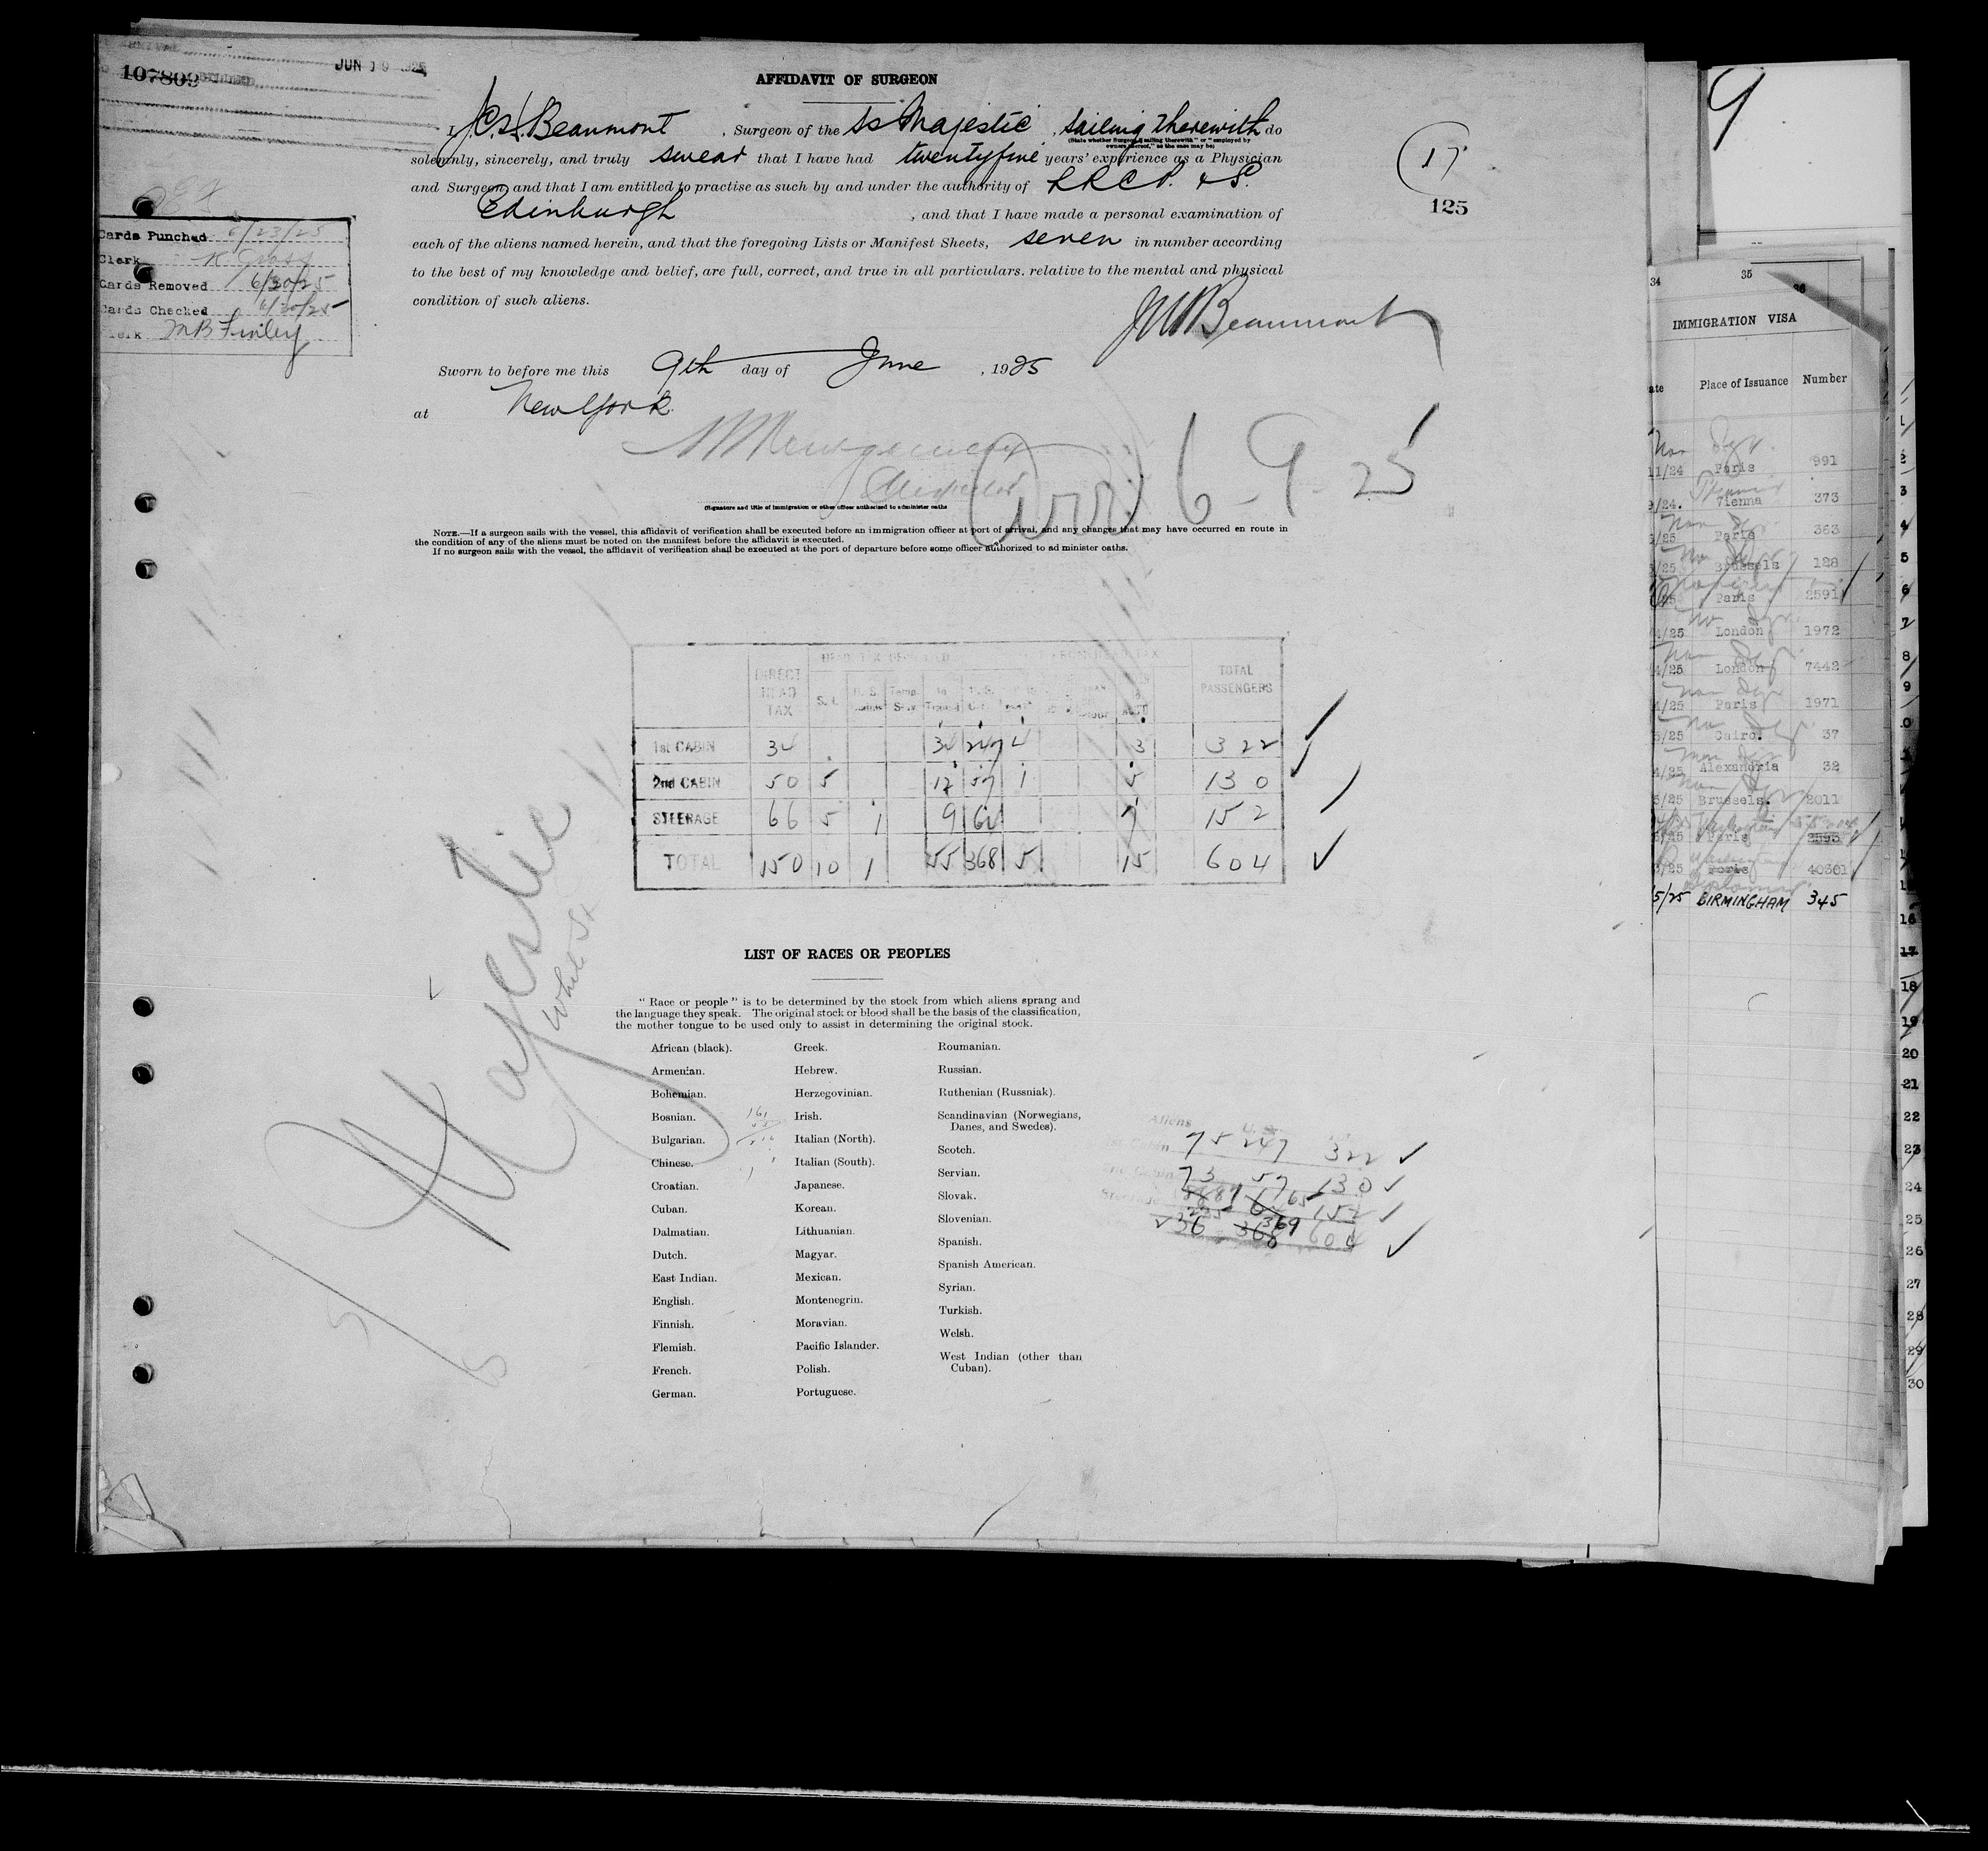 107802
JUN 9 1925
AFFIDAVIT OF SURGEON
I, J.C.H. Beaumont, Surgeon of the SS Majestic, sailing therewith do
(State whether Surgeon "sailing therewith" or "employed by
owners thereof," as the case may be)
solemnly, sincerely, and truly swear that I have had twentyfive years' experience as a Physician
and Surgeon and that I am entitled to practise as such by and under the authority of LRCP. & S.
Edinburgh, and that I have made a personal examination of
each of the aliens named herein, and that the foregoing Lists or Manifest Sheets, seven in number according
to the best of my knowledge and belief, are full, correct, and true in all particulars. relative to the mental and physical
condition of such aliens.
17
125
Cards Punched 6/23/25
Clerk K Gross
Cards Removed 6/30/25
Cards Checked 6/30/25
Clerk MB Finley
Beaumont
Sworn to before me this 9th day of June, 1925
at New York
Inspector
(Signature and title of immigration or other officer authorized to administer oaths
Arr 6-9-25
NOTE.—If a surgeon sails with the vessel, this affidavit of verification shall be executed before an immigration officer at port of arrival, and any changes that may have occurred en route in
the condition of any of the aliens must be noted on the manifest before the affidavit is executed.
If no surgeon sails with the vessel, the affidavit of verification shall be executed at the port of departure before some officer authorized to ad minister oaths.
DIRECT HEAD TAX
S. I.
Temp.
In Transit
TOTAL PASSENGERS
1st CABIN 34 34 247 4 3 322
2nd CABIN 50 5 12 57 1 5 130
STEERAGE 66 5 1 9 64 7 152
TOTAL 150 10 1 55 368 5 15 604
Majestic
White St
LIST OF RACES OR PEOPLES
"Race or people" is to be determined by the stock from which aliens sprang and
the language they speak. The original stock or blood shall be the basis of the classification,
the mother tongue to be used only to assist in determining the original stock.
African (black).
Armenian.
Bohemian.
Bosnian.
Bulgarian.
Chinese.
Croatian.
Cuban.
Dalmatian.
Dutch.
East Indian.
English.
Finnish.
Flemish.
French.
German.
Greek.
Hebrew.
Herzegovinian.
Irish.
Italian (North).
Italian (South).
Japanese.
Korean.
Lithuanian.
Magyar.
Mexican.
Montenegrin.
Moravian.
Pacific Islander.
Polish.
Portuguese.
Roumanian.
Russian.
Ruthenian (Russniak).
Scandinavian (Norwegians,
Danes, and Swedes).
Scotch.
Servian.
Slovak.
Slovenian.
Spanish.
Spanish American.
Syrian.
Turkish.
Welsh.
West Indian (other than
Cuban).
Aliens
75 247 322
73 57 130
87 65 152
235 369 604
9
34 35 36
IMMIGRATION VISA
Place of Issuance Number
11/24 Paris 991
9/24. Vienna 373
/25 Paris 363
/25 Brussels 128
/25 Paris 2591
4/25 London 1972
4/25 London 7442
4/25 Paris 1971
5/25 Cairo. 37
4/25 Alexandria 32
5/25 Brussels. 2011
5/25 Paris 2593
3/25 Paris 40301
5/25 BIRMINGHAM 345
2
3
4
5
6
7
8
9
16
17
18
19
20
21
22
23
24
25
26
27
28
29
30